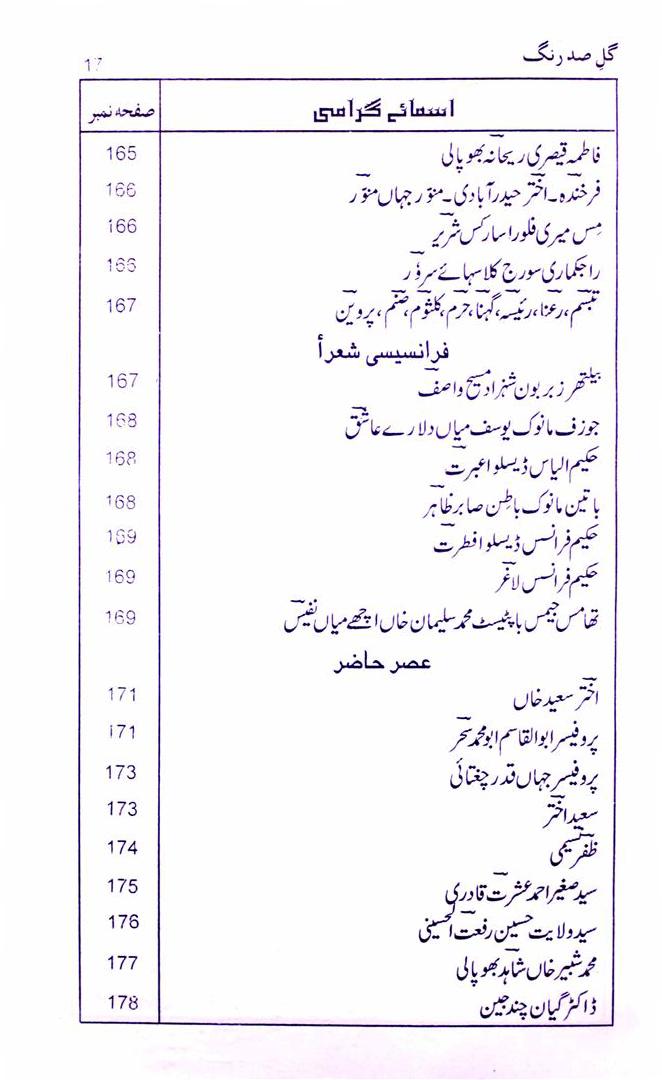 گلِ صد رنگ 17
اسمائے گرامی صفحہ نمبر
فاطمہ قیصری ریحانہ بھوپالی 165
فرخندہ۔ اختر حیدرآبادی۔ منور جہاں منور 166
مس میری فلورا سارکس شریر 166
راجکماری سورج کلا سہائے سرور 166
تبسم، رعنا، رئیسہ، گہنا، حرم، کلثوم، صنم، پروین 167
فرانسیسی شعرأ
بیلتھرز بربون شہزاد مسیح واصف 167
جوزف مانوک یوسف میاں دلارے عاشق 168
حکیم الیاس ڈیسلوا عبرت 168
باتین مانوک باطن صابر ظاہر 168
حکیم فرانس ڈیسلوا فطرت 169
حکیم فرانس لاغر 169
تھامس جیمس باپٹیسٹ محمد سلیمان خاں اچھے میاں نفیس 169
عصر حاضر
اختر سعید خاں 171
پروفیسر ابوالقاسم ابو محمد سحر 171
پروفیسر جہاں قدر چغتائی 173
سعید اختر 173
ظفر نسیمی 174
سید صغیر احمد عشرت قادری 175
سید ولایت حسین رفعت الحسینی 176
محمد شبیر خاں شاہد بھوپالی 177
ڈاکٹر گیان چند جین 178